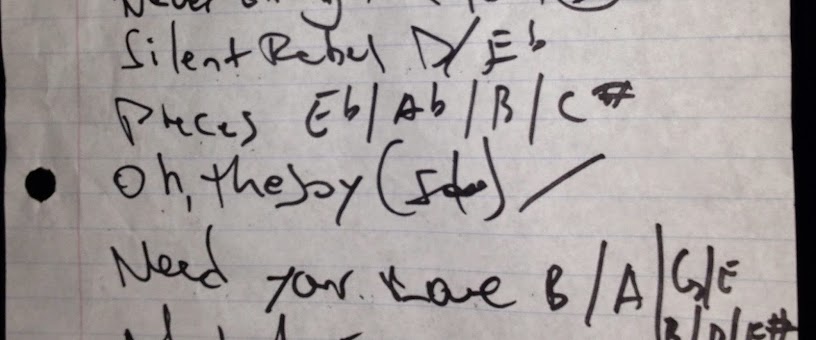 Never
Silent Rebel D/Eb
Pieces Eb/Ab/B/C#
Oh, the Joy ( ) /
Need your Love B/A/G/E
B/D/E#